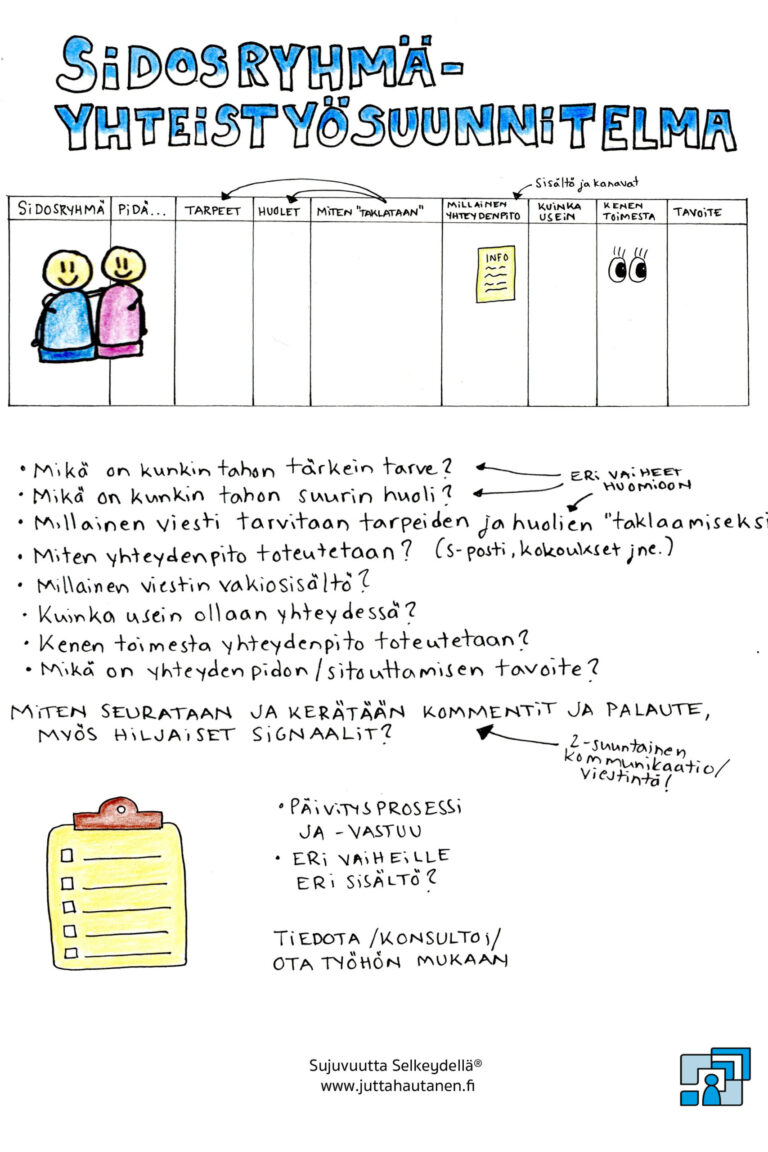 SiDOSRYHMÄ-
YHTEiSTYÖSUUNNiTELMA
Sisältö ja kanavat
SiDOSRYHMÄ
PiDÄ...
TARPEET
HUOLET
MiTEN "TAKLATAAN"
MiLLAiNEN
YHTEYDENPiTO
KUiNKA
USEiN
KENEN
TOiMESTA
TAVOiTE
INFO
• Mikä on kunkin tahon tärkein tarve?
• Mikä on kunkin tahon suurin huoli?
ERi VAiHEET
HUOMiOON
• Millainen viesti tarvitaan tarpeiden ja huolien "taklaamiseksi
• Miten yhteydenpito toteutetaan? (s-posti, kokoukset jne.)
• Millainen viestin vakiosisältö?
• Kuinka usein ollaan yhteydessä?
• Kenen toimesta yhteydenpito toteutetaan?
• Mikä on yhteydenpidon/sitouttamisen tavoite?
MiTEN SEURATAAN JA KERÄTÄÄN KOMMENTiT JA PALAUTE,
MYÖS HiLJAiSET SiGNAALiT?
2-suuntainen
kommunikaatio/
viestintä!
• PÄiViTYSPROSESSi
JA -VASTUU
• ERi VAiHEiLLE
ERi SiSÄLTÖ?
TiEDOTA/KONSULTOi/
OTA TYÖHÖN MUKAAN
Sujuvuutta Selkeydellä®
www.juttahautanen.fi